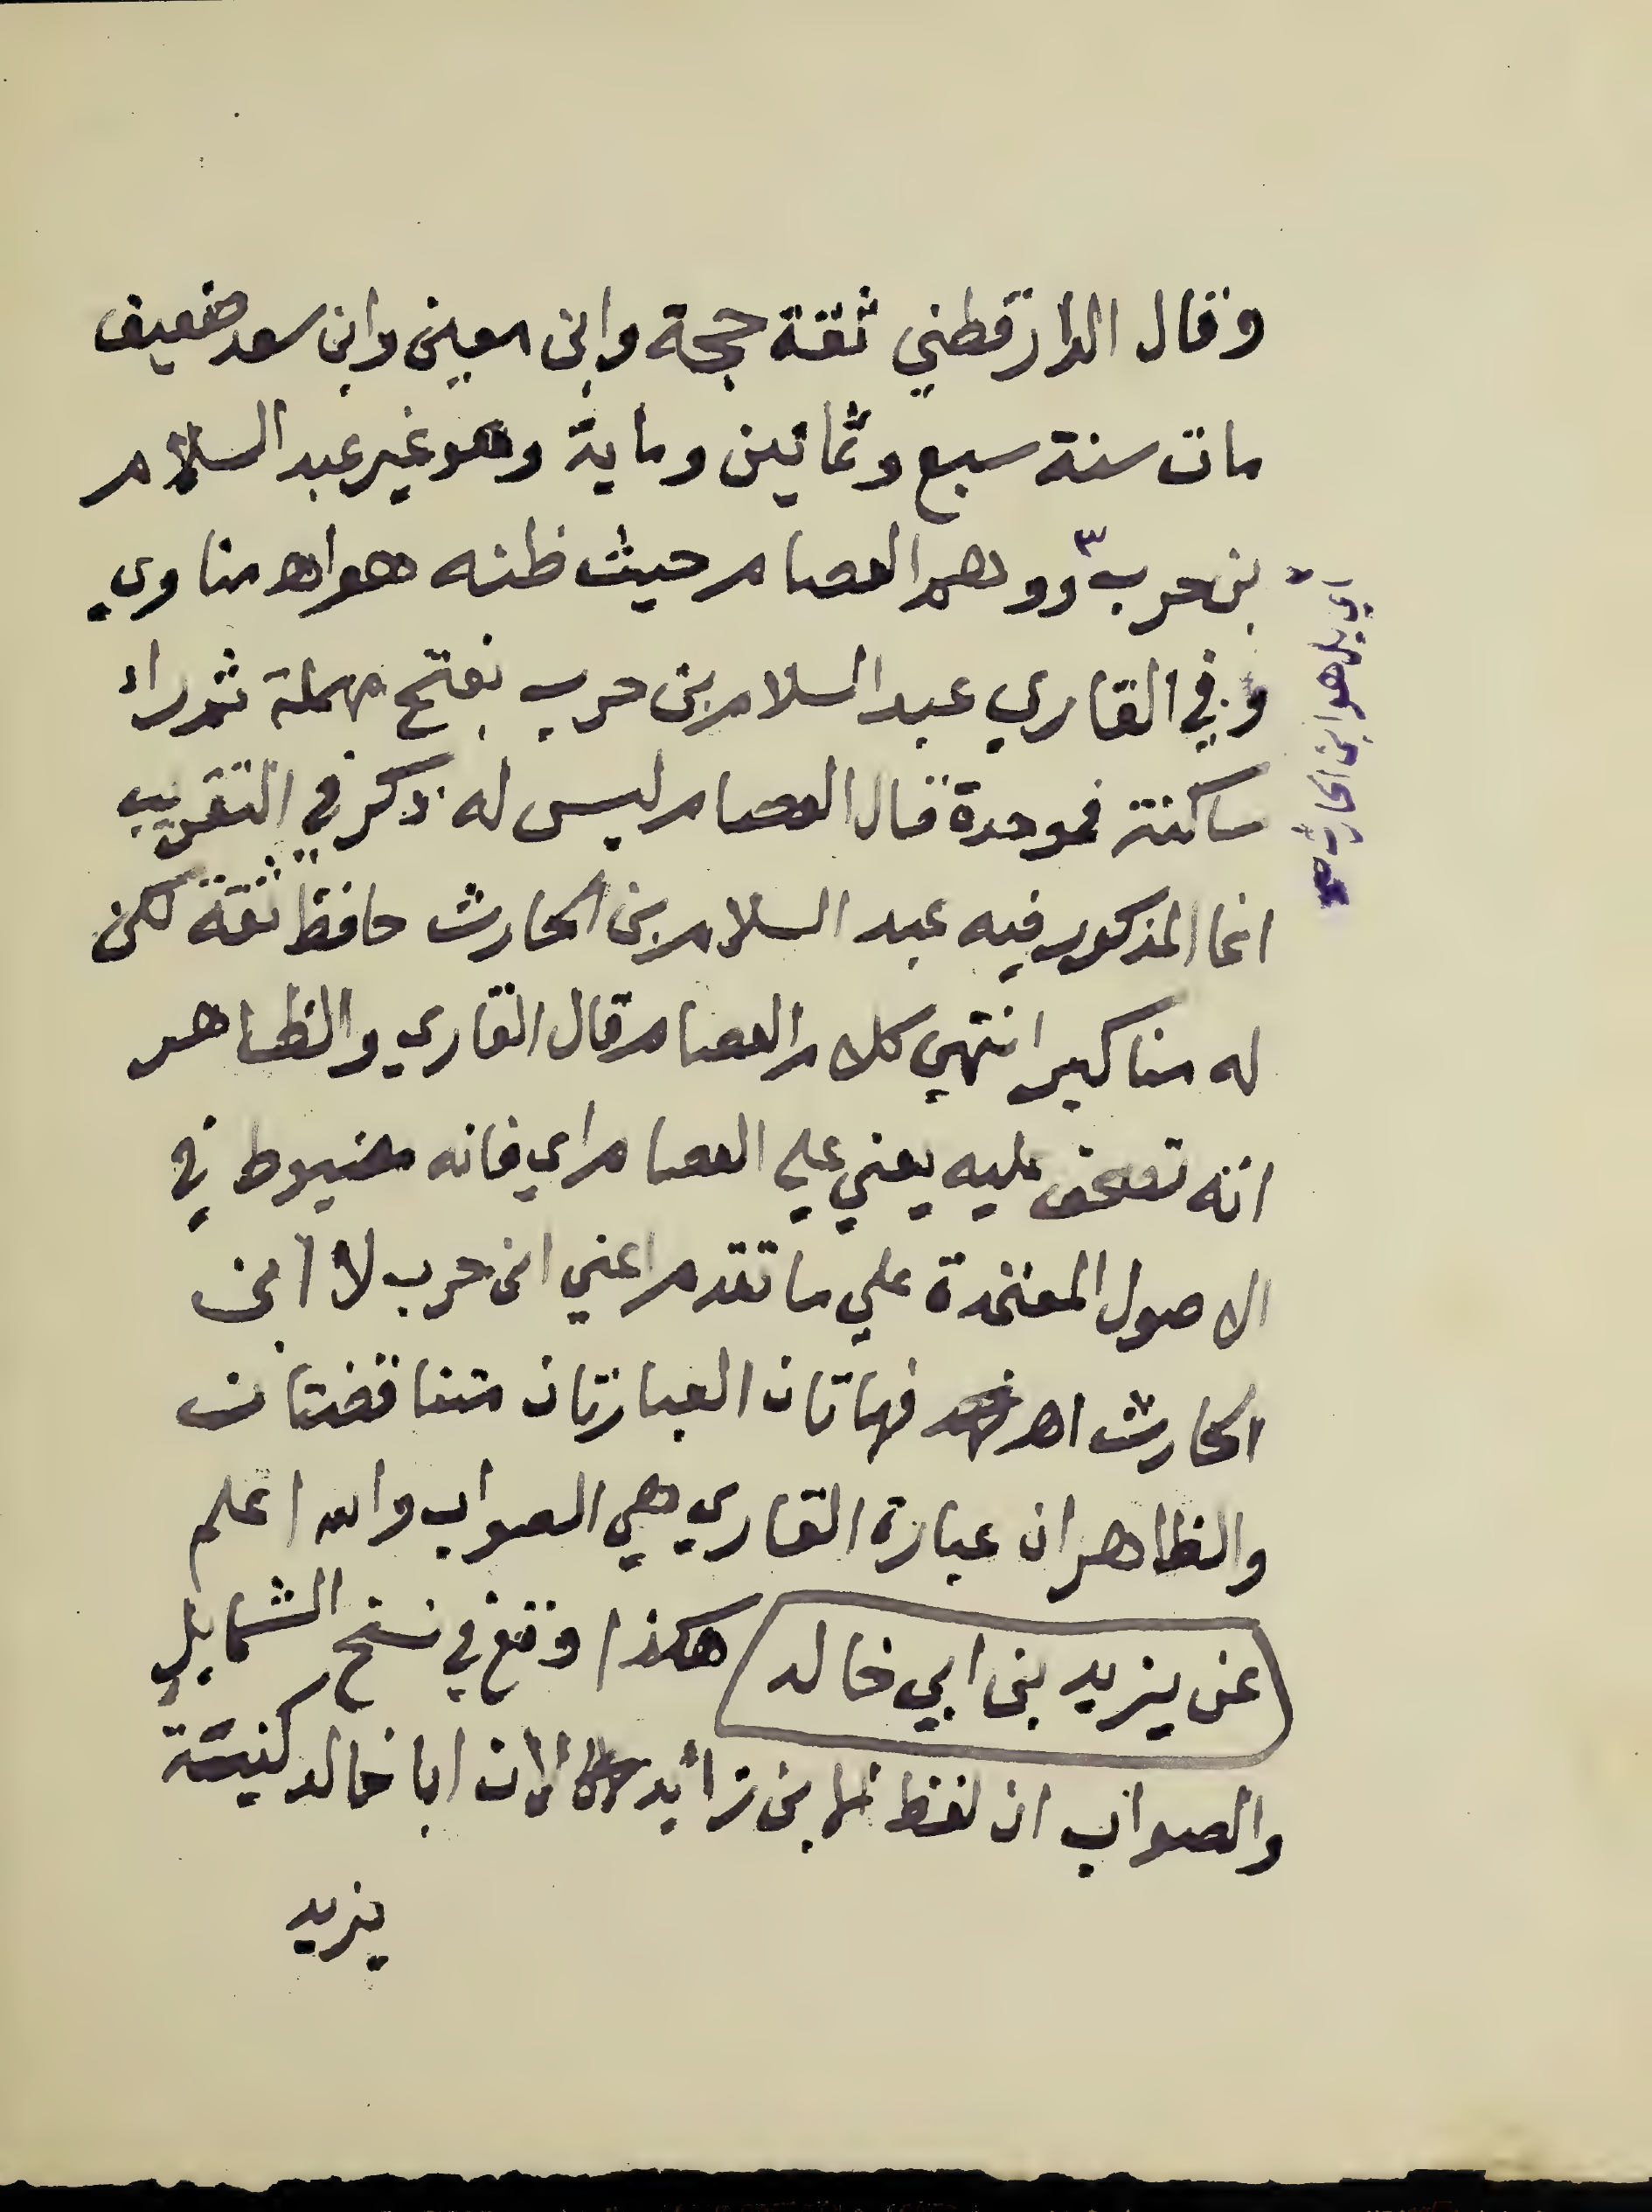 وقال الدارقطني ثقة حجة وابن معين وابن سعد ضعيف
مات سنة سبع وثمانين وماية وهو غير عبد السلام
بن حرب ٣ ووهم العصام حيث ظنه هو اهـ مناوي
وفي القاري عبد السلام بن حرب بفتح مهملة ثم راء
ساكنة فموحدة قال العصام ليس له ذكر في التقريب
انما المذكور فيه عبد السلام بن الحارث حافظ ثقة لكن
له مناكير انتهي كلام العصام قال القاري والظاهر
انه تصحف عليه يعني علي العصام اي فانه مضبوط في
الاصول المعتمدة علي ما تقدم اعني ابن حرب لا ابن
الحارث اهـ فهاتان العبارتان متناقضتان
والظاهر ان عبارة القاري هي الصواب والله اعلم
عن يزيد بن ابي خالد هكذا وقع في نسخ الشمايل
والصواب ان لفظ ابن زايد لان ابا خالد كنيته
يزيد
٣ اي بل هو ابن الحارث